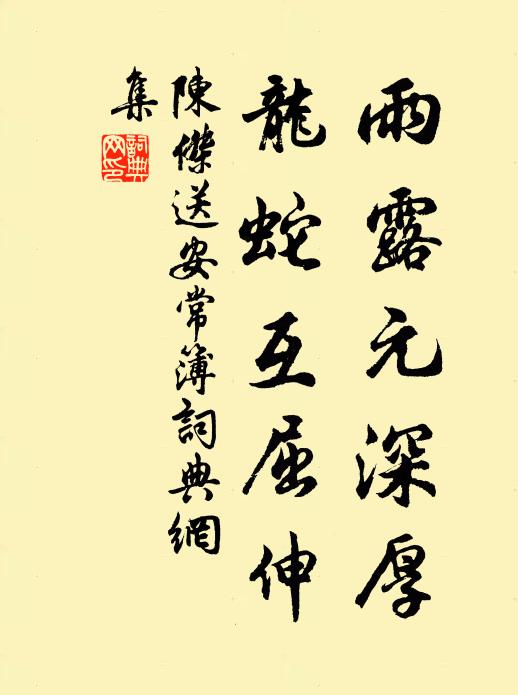 雨露元深厚
龍蛇互屈伸
陳傑送安常簿詞典網
集
詞典
网印